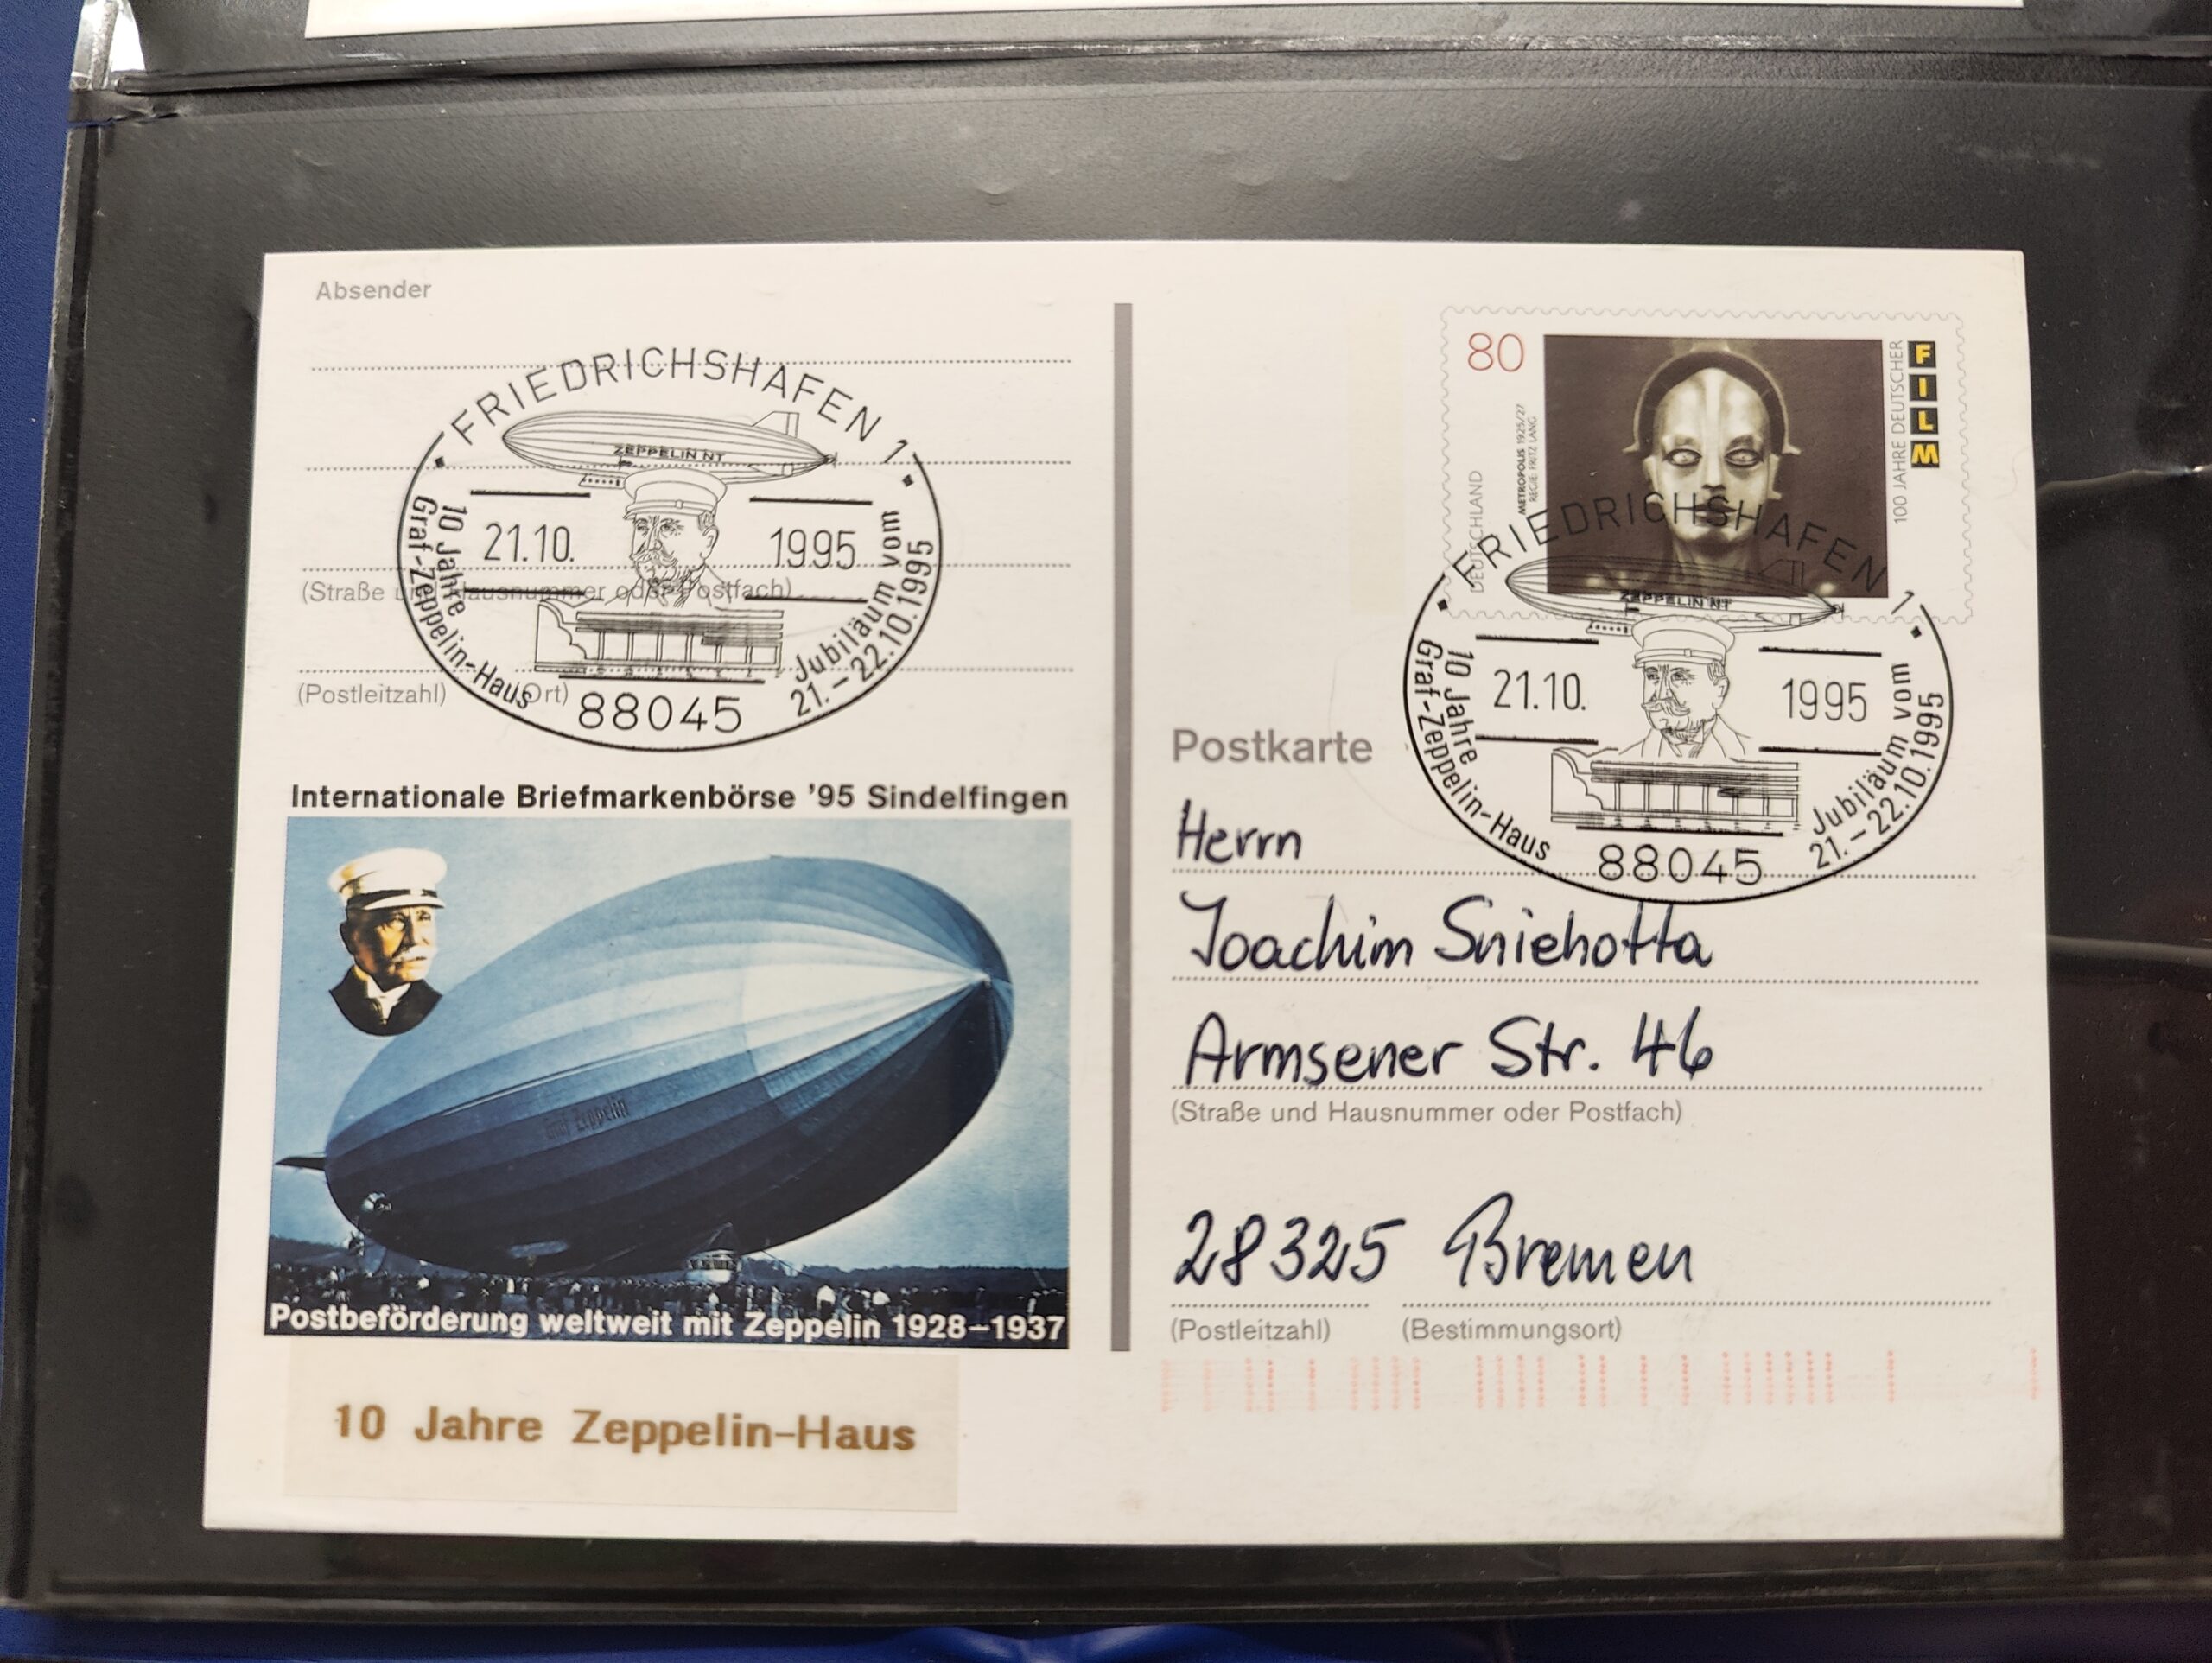 Absender
FRIEDRICHSHAFEN 1
ZEPPELIN NT
21.10. 1995
10 Jahre
Graf-Zeppelin-Haus
Jubiläum vom
21.–22.10.1995
88045
(Straße und Hausnummer oder Postfach)
(Postleitzahl) (Ort)
Internationale Briefmarkenbörse '95 Sindelfingen
Graf Zeppelin
Postbeförderung weltweit mit Zeppelin 1928–1937
10 Jahre Zeppelin-Haus
80
DEUTSCHLAND
METROPOLIS 1925/27
REGIE: FRITZ LANG
100 JAHRE DEUTSCHER
FILM
FRIEDRICHSHAFEN 1
ZEPPELIN NT
21.10. 1995
10 Jahre
Graf-Zeppelin-Haus
Jubiläum vom
21.–22.10.1995
88045
Postkarte
Herrn
Joachim Sniehotta
Armsener Str. 46
(Straße und Hausnummer oder Postfach)
28325 Bremen
(Postleitzahl) (Bestimmungsort)